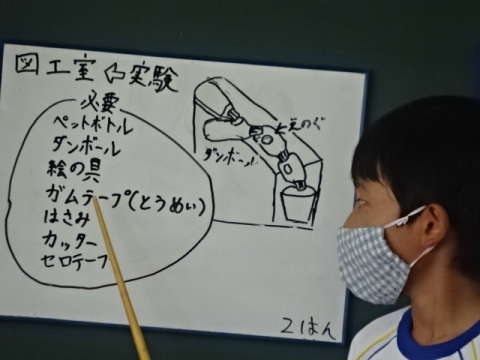 図工室⇦実験
必要
ペットボトル
ダンボール
絵の具
ガムテープ(とうめい)
はさみ
カッター
セロテープ
えのぐ
ダンボール
2はん